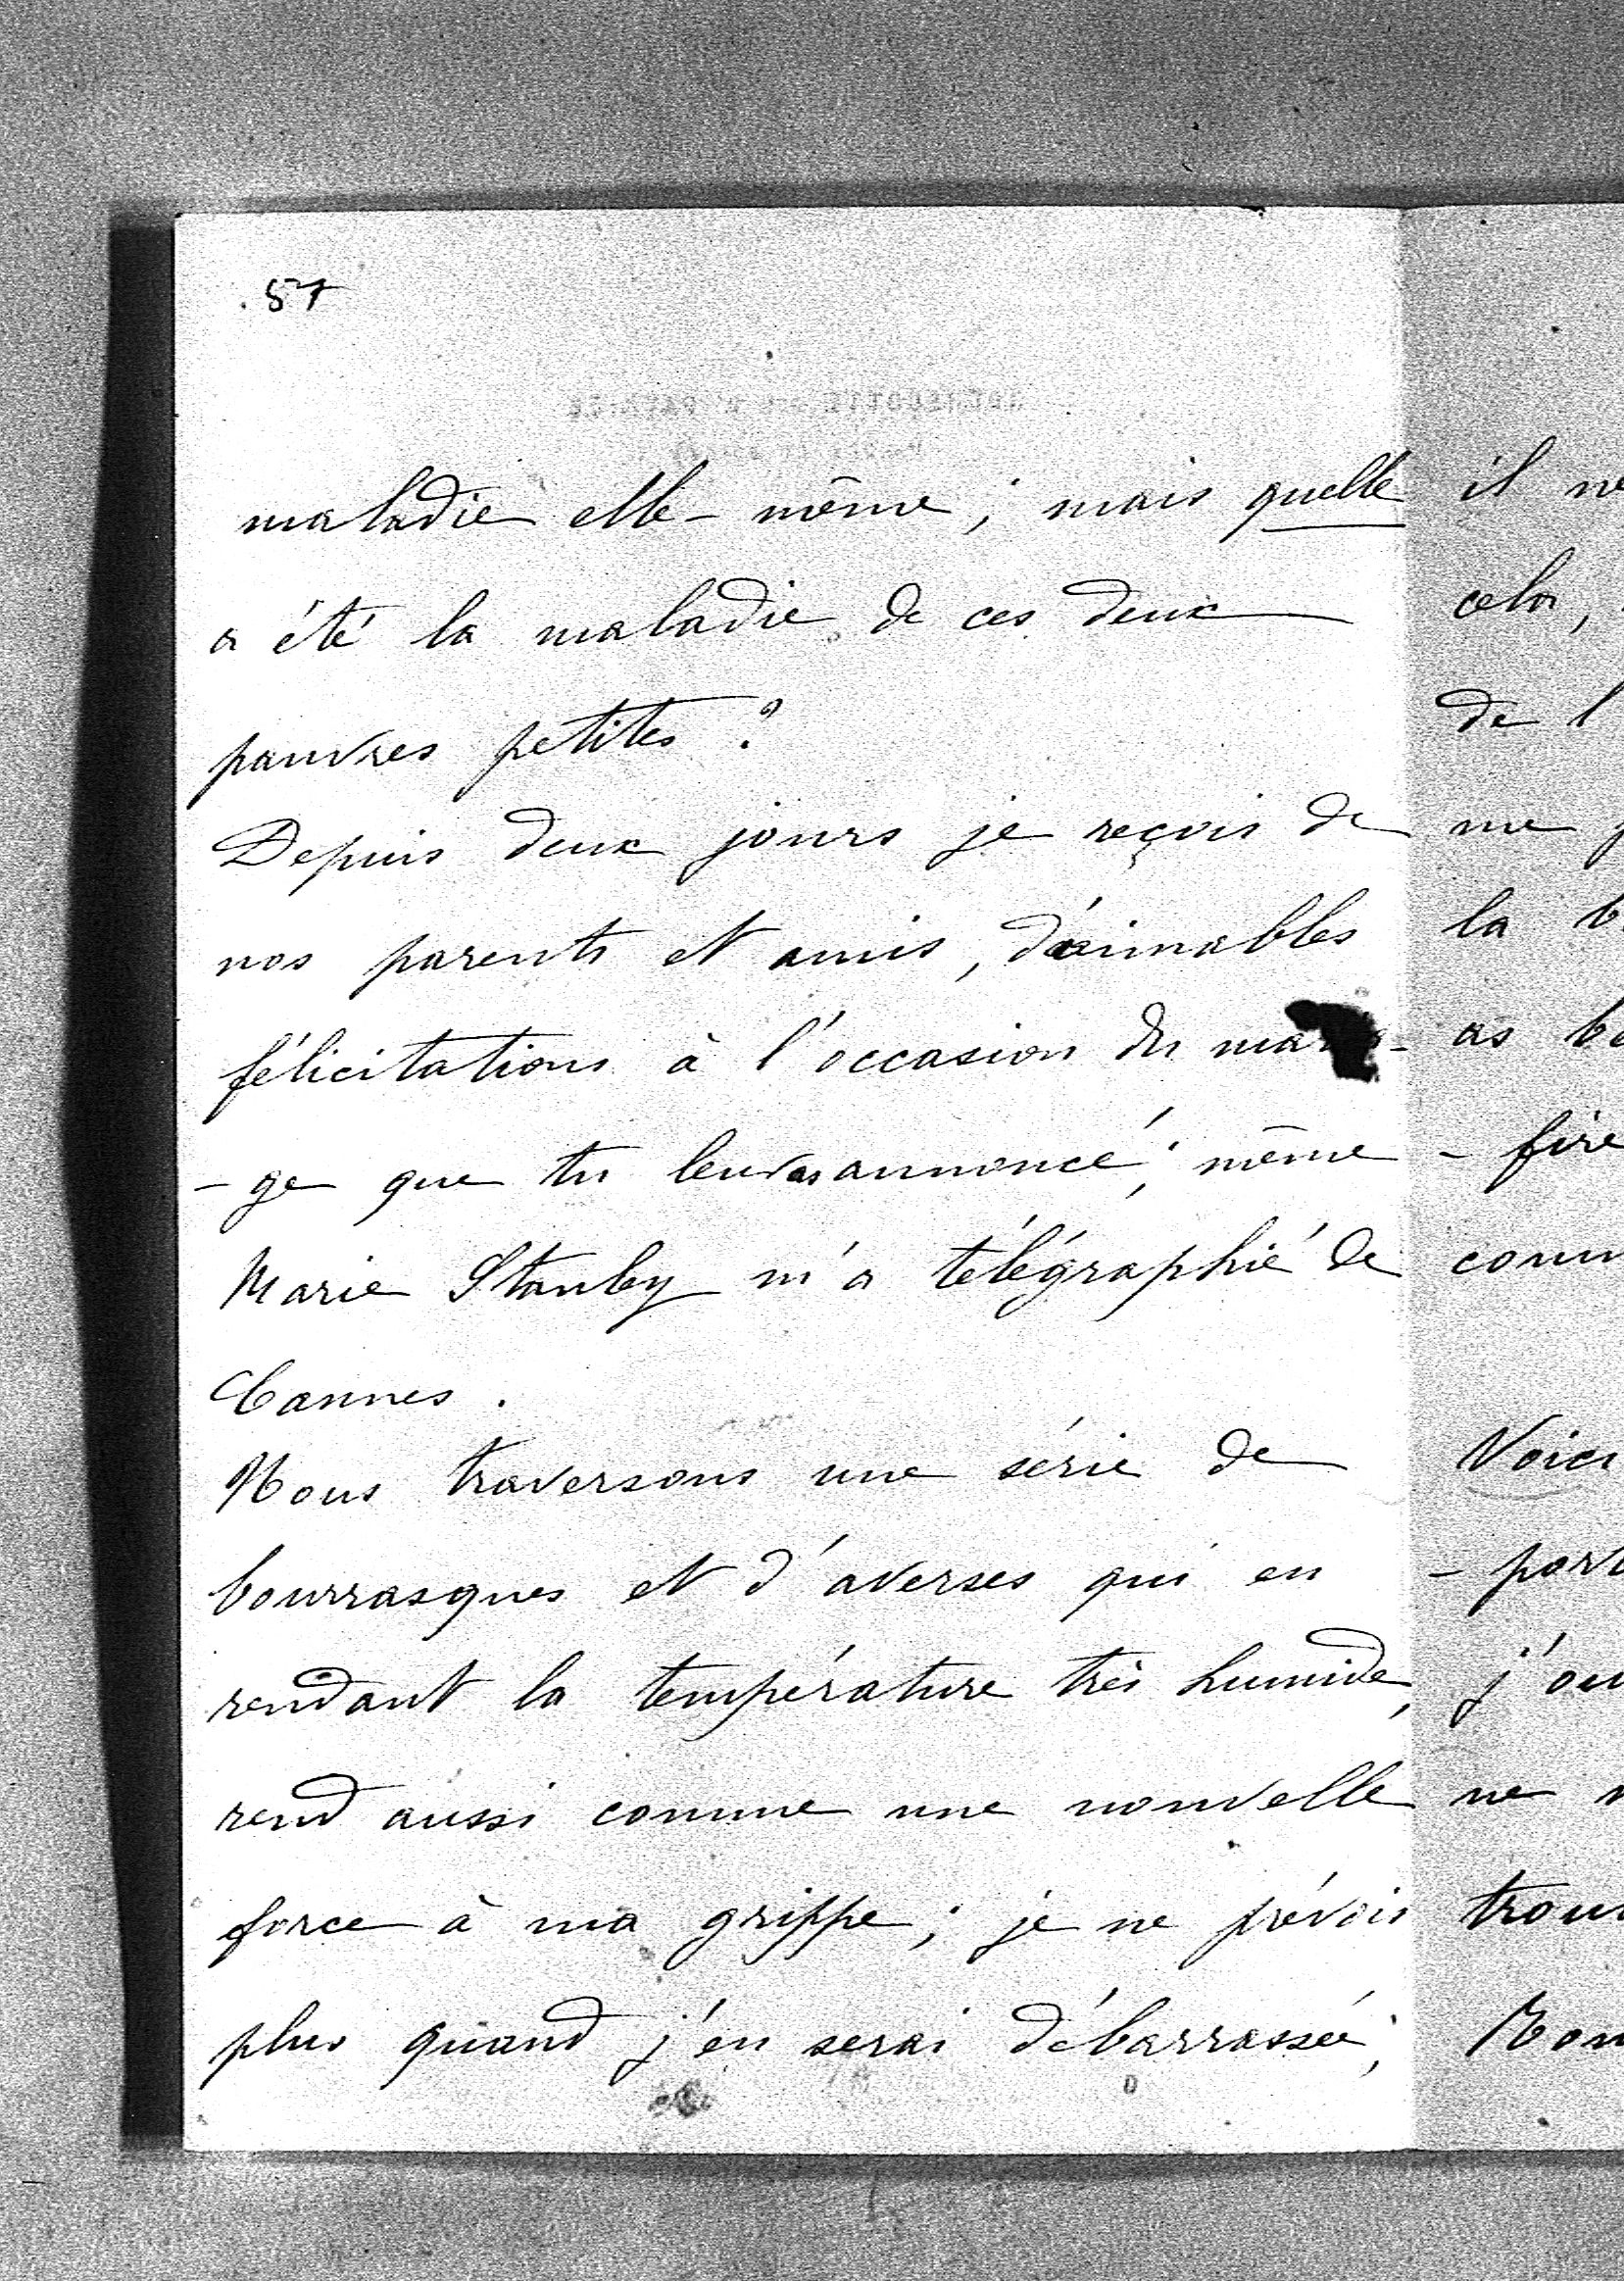 57
maladie elle-même ; mais quelle
a été la maladie de ces deux
pauvres petites ?
Depuis deux jours je reçois de
nos parents et amis, d'aimables
félicitations à l'occasion du maria-
-ge que tu leur as annoncé ; même
Marie Stanley m'a télégraphié de
Cannes.
Nous traversons une série de
bourrasques et d'averses qui en
rendant la température très humide,
rend aussi comme une nouvelle
force à ma grippe ; je ne prévois
plus quand j'en serai débarrassée ;
il ne
cela,
de l
me
la
as
- fire
Voici
- port
j'ou
ne
trou